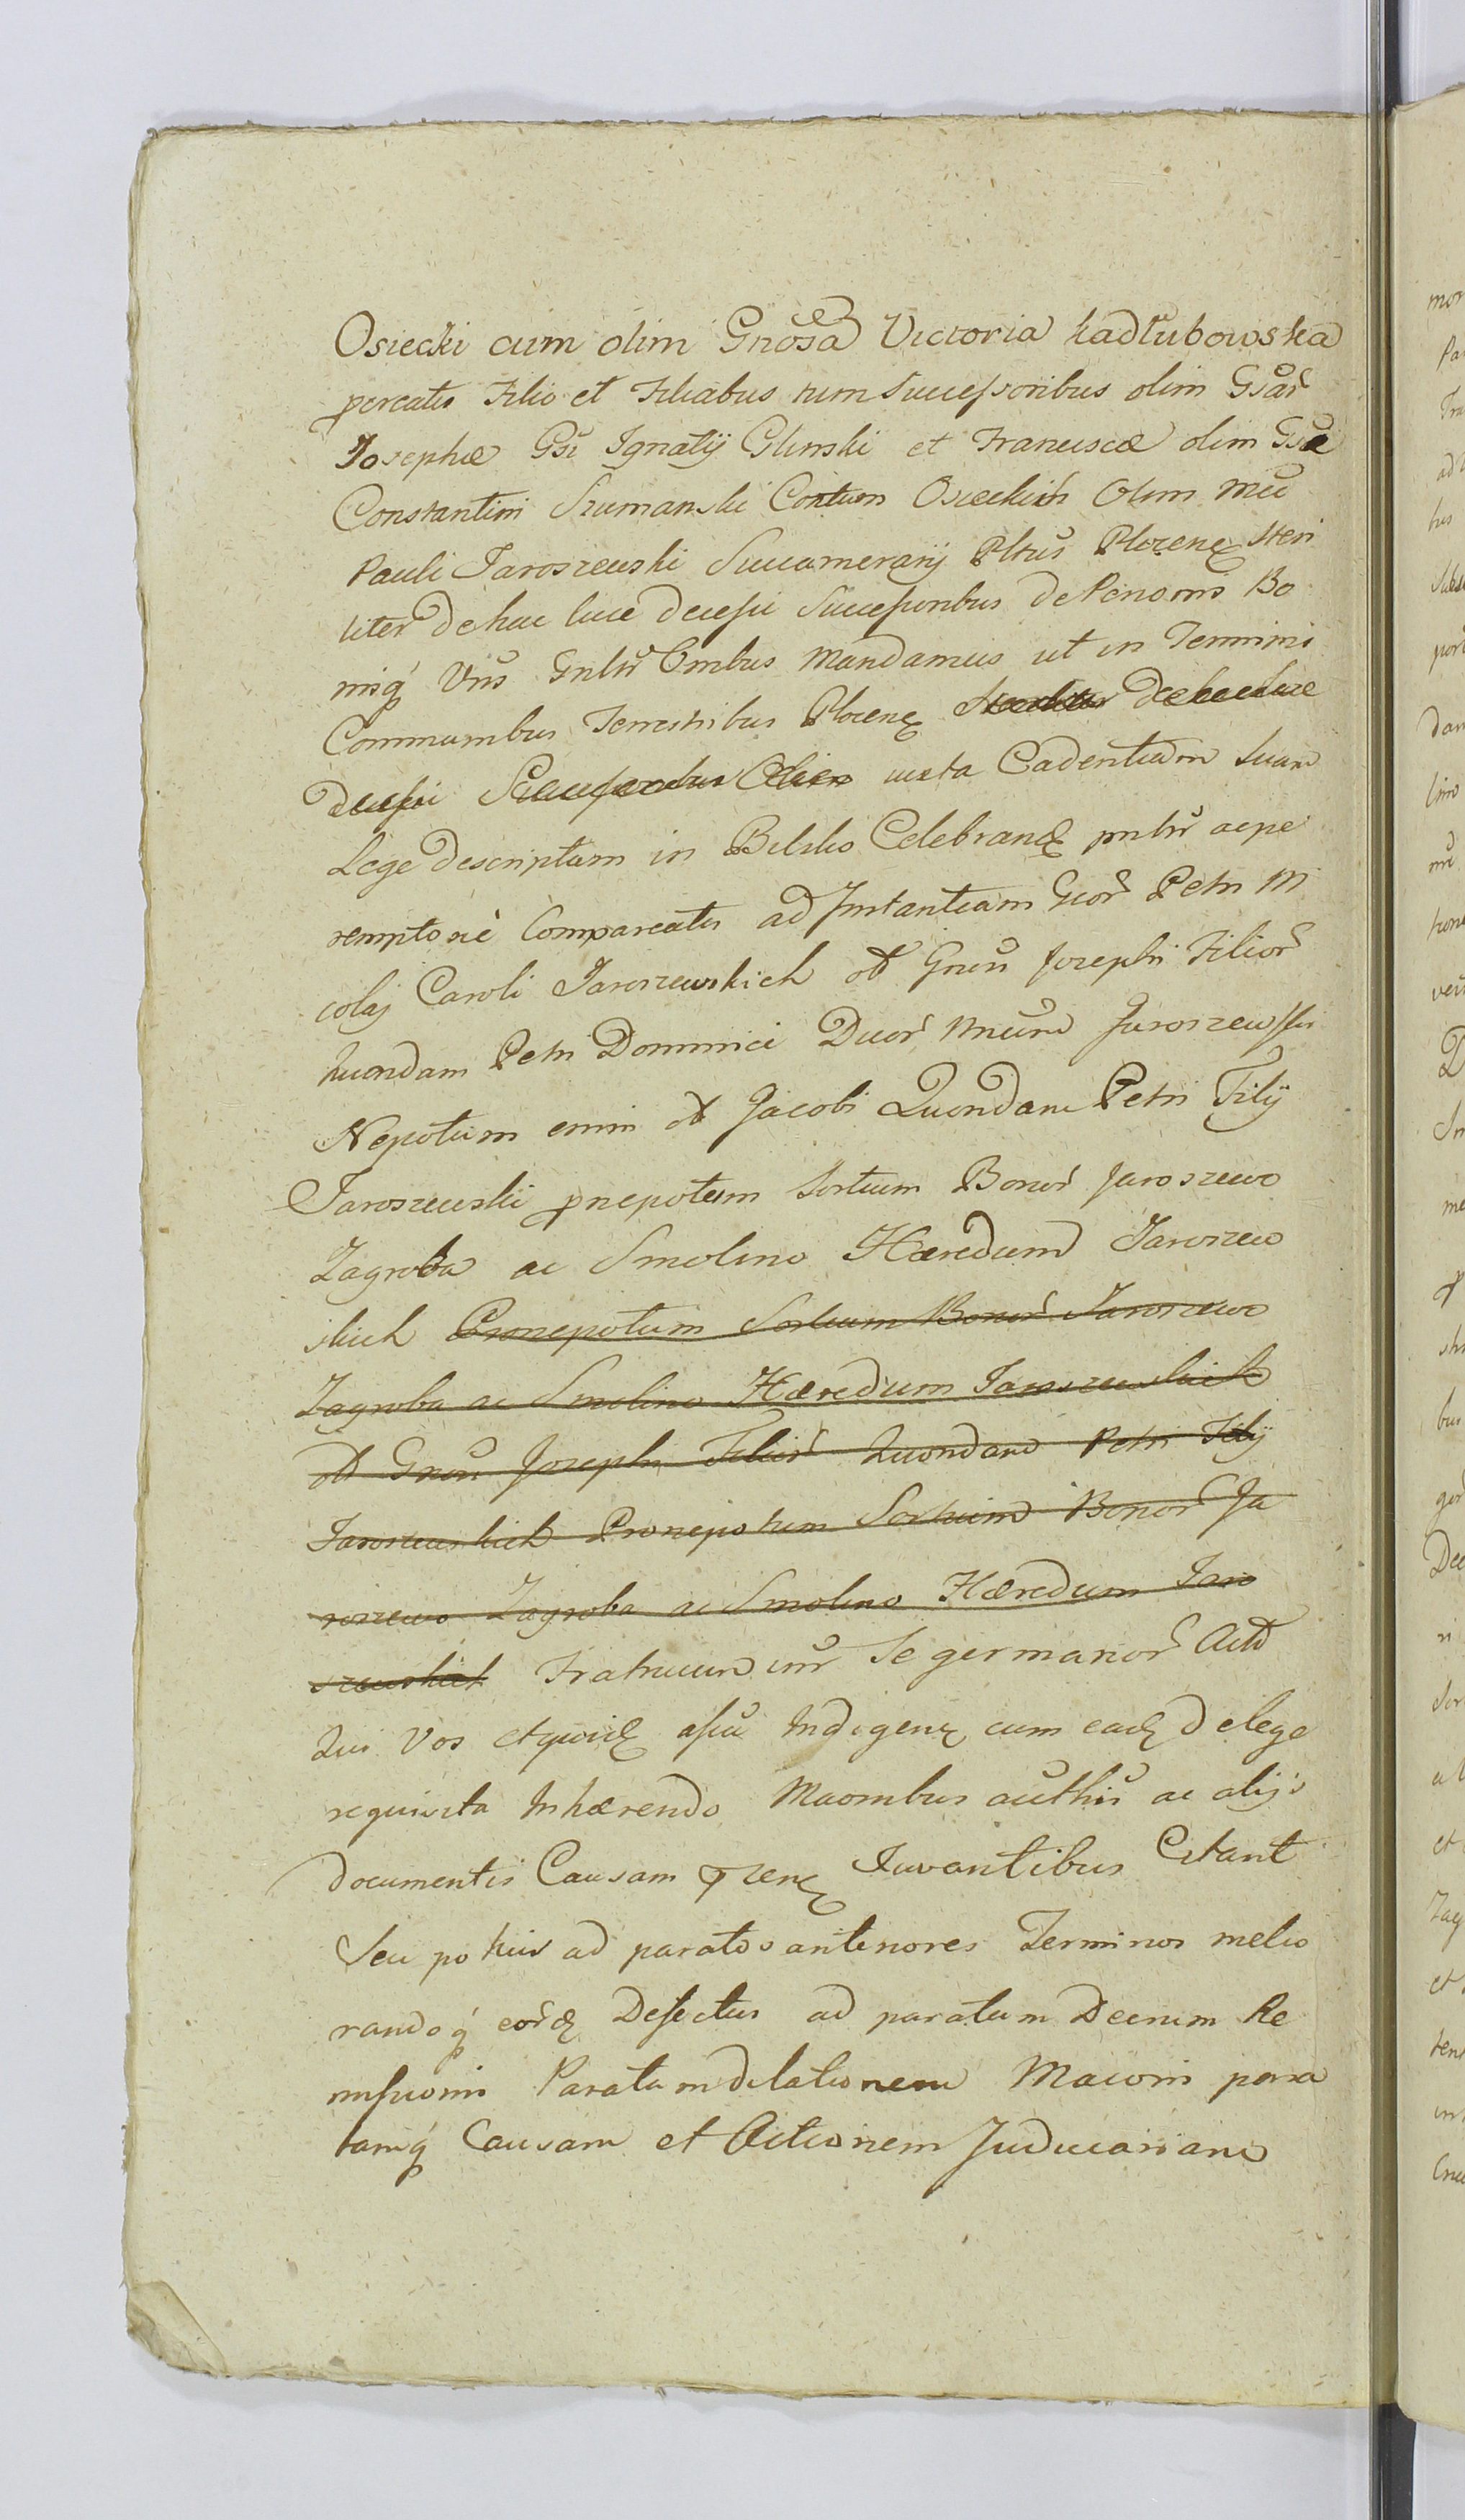 Osiecki cum olim Gnosa Victoria Kadłubowska
pcreatis Filio et Filiabus tum Successoribus olim Gsar
Josephæ Gsi Ignatij Glinski et Franciscæ olim Gsi
Constantini Szumanski Contum Osieckich Olim Mci
Pauli Jaroszewski Succamerarij Pltus Plocen Steri
liter de hac luce decessi Successoribus de Personis Bo
nisq Vris Gnlr Ombus Mandamus ut in Terminis
Communibus Terrestribus Plocen Steriliter de hac luce
decessi Successoribus Olim iuxta Cadentiam suam
Lege descriptam in Bielsko Celebrand pntr acpe
remptorie Compareatis ad Instantiam Gsor Petri M
colaj Caroli Jaroszewskich et Gnosi Josephi Filior
Quondam Petri Dominici Duor Mcum Jaroszewski
Nepotum enim et Jacobi Quondam Petri Filij
Jaroszewski pnepotum Sortium Bonor Jaroszewo
Zagroba ac Smolino Hæredum Jaroszew
skich Pronepotum Sortium Bonor Jaroszewo
Zagroba ac Smolino Hæredum Jaroszewskich
et Gnosi Josephi Filior Quondam Petri Filij
Jaroszewskich Pronepotum Sortium Bonor Ja
roszewo Zagroba ac Smolino Hæredum Jaro
szewskich Fratruum inr Se germanor Actor
Qui Vos etquid assu Indigen cum ead d elege
requisita Inhærendo Maombus authis ac alijs
documentis Causam pzen Iuvantibus Citant
Seu potius ad paratos anteriores Terminos melio
randoq eord Defectus ad paratum Decrum Re
missionis Paratam dilationem Maioris para
tamq Causam et Actionem Judiciariam